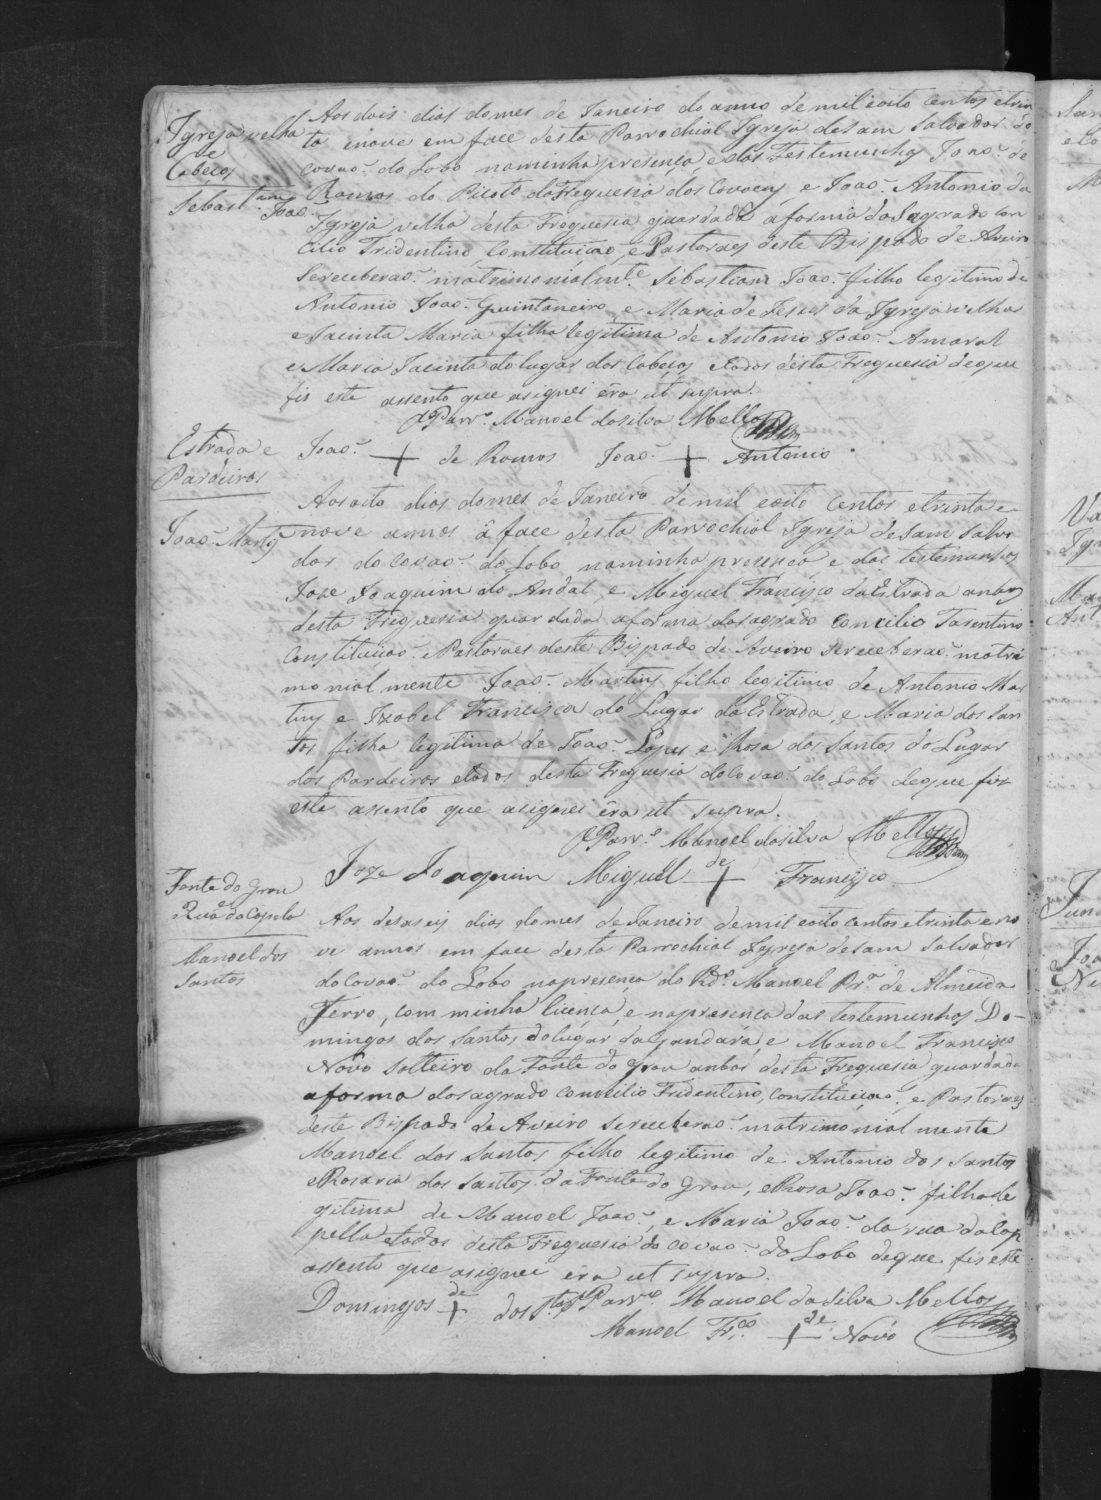 Igreja velha
de
Cabeços
Sebastiam
Joaõ
Aos dois dias do mes de Janeiro do anno de mil eoito centos etrin
ta énove em face desta Parrochial Igreja desam Salvador do
covaõ do Lobo naminha presença e das Testemunhas Joaõ de
Ramos do Picoto da Freguesia dos Covoens, e Joaõ Antonio da
Igreja velha desta Freguesia guardada aforma do Sagrado Con
cilio Tridentino Constituiçaõ, e Pastoraes deste Bispado de Aveiro
Sereceberaõ matrimonialmte. Sebastiam Joaõ filho legitimo de
Antonio Joaõ Quintaneiro, e Maria de Jesus da Igreja velha
e Jacinta Maria filha legitima de Antonio Joaõ Amaral
e Maria Jacinta do lugar dos Cabeços etodos desta Freguesia deque
fis este assento que asignei éra ut supra.
O Parro. Manoel dasilva Mello
Joaõ + de Ramos Joaõ + Antonio
Estrada e
Pardeiros
Joaõ Martins
Aosoito dias domes de Janeiro de mil eoito centos etrinta e
nove annos á face desta Parrochial Igreja desam salva
dor do covaõ do Lobo naminha presença e das testemunhas
Joze Joaquim do Andal, e Miguel Francisco daEstrada anbos
desta Freguesia guardada aforma dosagrado concilio Tarentino
Constituicaõ e Pastoraes deste Bispado de Aveiro sereceberaõ matri
monial mente Joaõ Martins filho legitimo de Antonio Mar
tins e Izabel Francisca do Lugar da Estrada, e Maria dos San
tos filha legitima de Joaõ Lopes e Rosa dos Santos do Lugar
dos Pardeiros etodos desta Freguesia doCovaõ do Lobo deque fis
este assento que asignei éra ut supra.
O Parro. Manoel dasilva Mello
Joze Joaquim Miguel de + Francisco
Fonte do Grou
e Rua da Capela
Manoel dos
Santos
Aos desaseis dias domes deJaneiro demil eoito centos etrinta eno
ve annos em face desta Parrochial Igreja desam Salvador
doCovaõ do Lobo napresença do Rdo. Manoel Pra. de Almeida
Ferro, com minha licença, e napresença das testemunhas Do-
mingos dos Santos dolugar dagandara, e Manoel Francisco
Novo solteiro da Fonte do Grou anbos desta Freguesia guardada
aforma dosagrado concilio Tridentino, constituiçaõ, e Pastoraes
deste Bispado de Aveiro sereceberaõ matrimonial mente
Manoel dos Santos filho legitimo de Antonio dos Santos
eRosaria dos Santos da Fonte do Grou, eRosa Joaõ filha le
gitima de Manoel Joaõ, e Maria Joaõ da rua daCap
pella etodos desta Freguesia do covaõ do Lobo deque fis este
assento que asignei éra ut supra.
Domingos de + dos Stos. O Parro. Manoel da silva Mello
Manoel Frco. + de Novo